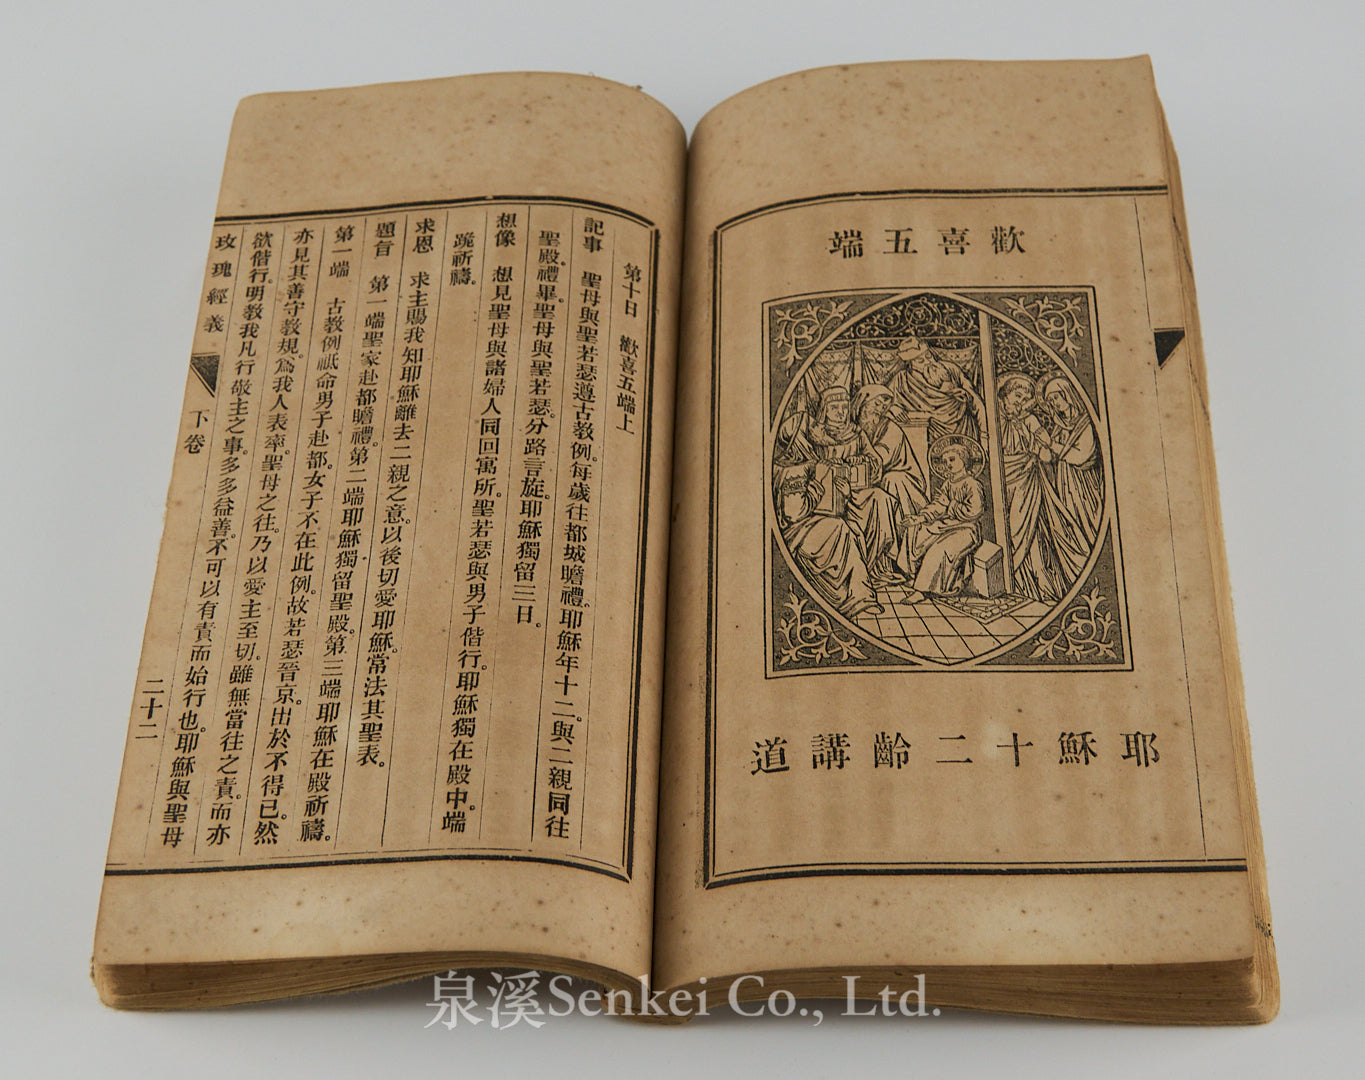 歡喜五端
耶穌十二齡講道
第十日　歡喜五端上
記事　聖母與聖若瑟遵古教例。每歲往都城瞻禮。耶穌年十二。與二親同往
聖殿。禮畢。聖母與聖若瑟。分路言旋。耶穌獨留三日。
想像　想見聖母與諸婦人同回寓所。聖若瑟與男子偕行。耶穌獨在殿中。端
跪祈禱。
求恩　求主賜我知耶穌離去二親之意。以後切愛耶穌。常法其聖表。
題旨　第一端聖家赴都瞻禮。第二端耶穌獨留聖殿。第三端耶穌在殿祈禱。
第一端　古教例祇命男子赴都。女子不在此例。故若瑟晉京。出於不得已。然
亦見其善守教規。為我人表率。聖母之往。乃以愛主至切。雖無當往之責。而亦
欲偕行。明教我凡行敬主之事。多多益善。不可以有責而始行也。耶穌與聖母
玫瑰經義　下卷　二十二
泉溪Senkei Co., Ltd.